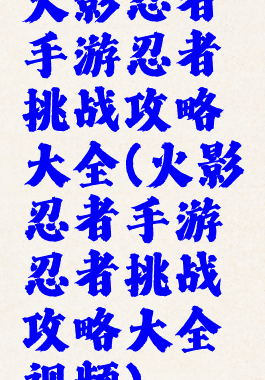 火影忍者
手游忍者
挑战攻略
大全(火影
忍者手游
忍者挑战
攻略大全
视频)